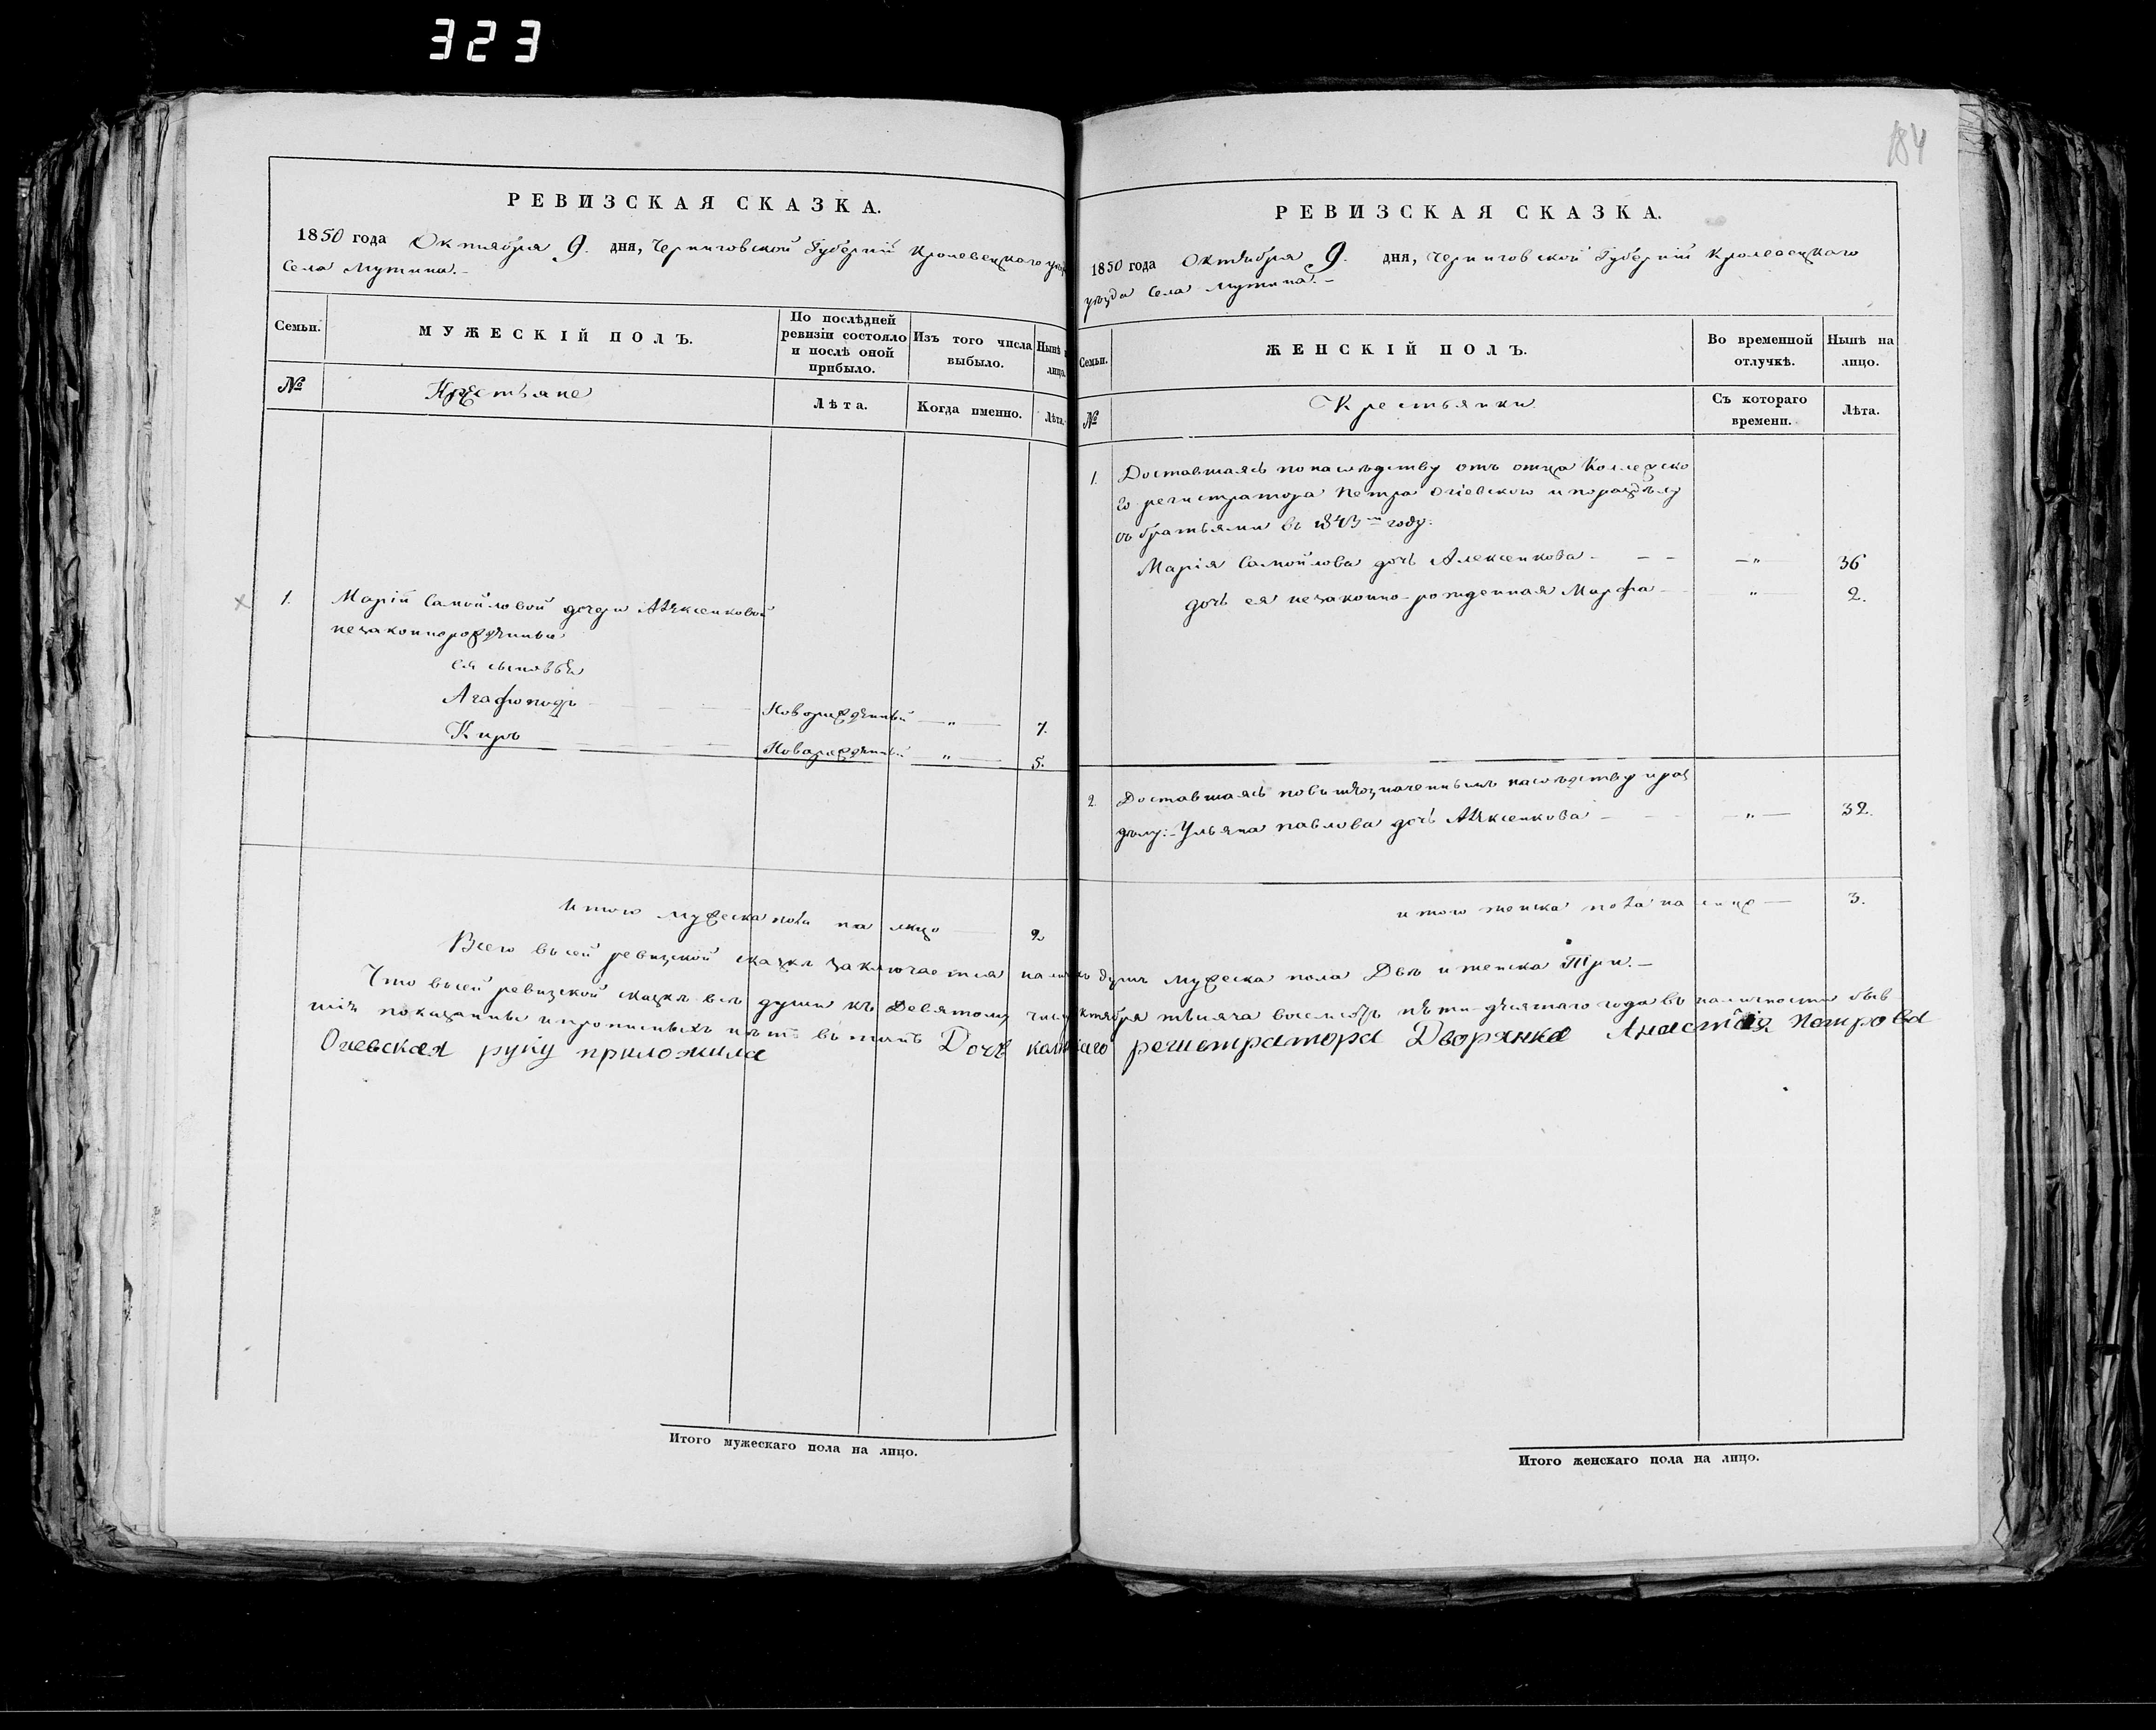 323
184
РЕВИЗСКАЯ СКАЗКА.
1850 года Октября 9. дня, Черниговской Губерніи Кролевецкаго уѣзда
Села Мутина.-
Семьи.
МУЖЕСКІЙ ПОЛЪ.
По послѣдней ревизіи состояло и послѣ оной прибыло.
Изъ того числа выбыло.
Нынѣ лицо.
№
Крестьяне
Лѣта.
Когда именно.
Лѣта.
1. Маріи Самойловой дочери Алексенковой
незаконнорожденные
ея сыновья
Агафоподъ — Новорожденный — „ — 7.
Киръ — Новорожденный „ — 5.
Итого мужеска пола на лицо — 2
РЕВИЗСКАЯ СКАЗКА.
1850 года Октября 9. дня, Черниговской Губерніи Кролевецкаго
уѣзда Села Мутина.-
Семьи.
ЖЕНСКІЙ ПОЛЪ.
Во временной отлучкѣ.
Нынѣ на лицо.
№
Крестьянки
Съ котораго времени.
Лѣта.
1. Доставшаясь по наслѣдству отъ отца Коллежско
го регистратора Петра Огіевского и по раздѣлу
съ братьями въ 1843 м году:
Марія Самойлова дочь Алексенкова - — — — „ — 36
дочь ея незаконно-рожденная Марфа — „ — 2.
2. Доставшаясь по вышеозначеннымъ наслѣдству и раз
дѣлу:- Ульяна Павлова дочь Алексенкова — — „ — 32.
итого женска пола на лице — 3.
Всего в сей ревизской сказкѣ заключается налицо душъ мужеска пола Двѣ и женска Три.—
Что в сей ревизской сказкѣ всѣ души къ Девятому числу Октября тысяча восемсотъ пѣтидѣсятаго года въ наличности быв
шія показанны и прописныхъ нѣтъ в томъ Дочь регистратора Дворянка Анастасія Петрова
Огевская руку приложила
Итого мужескаго пола на лицо.
Итого женскаго пола на лицо.